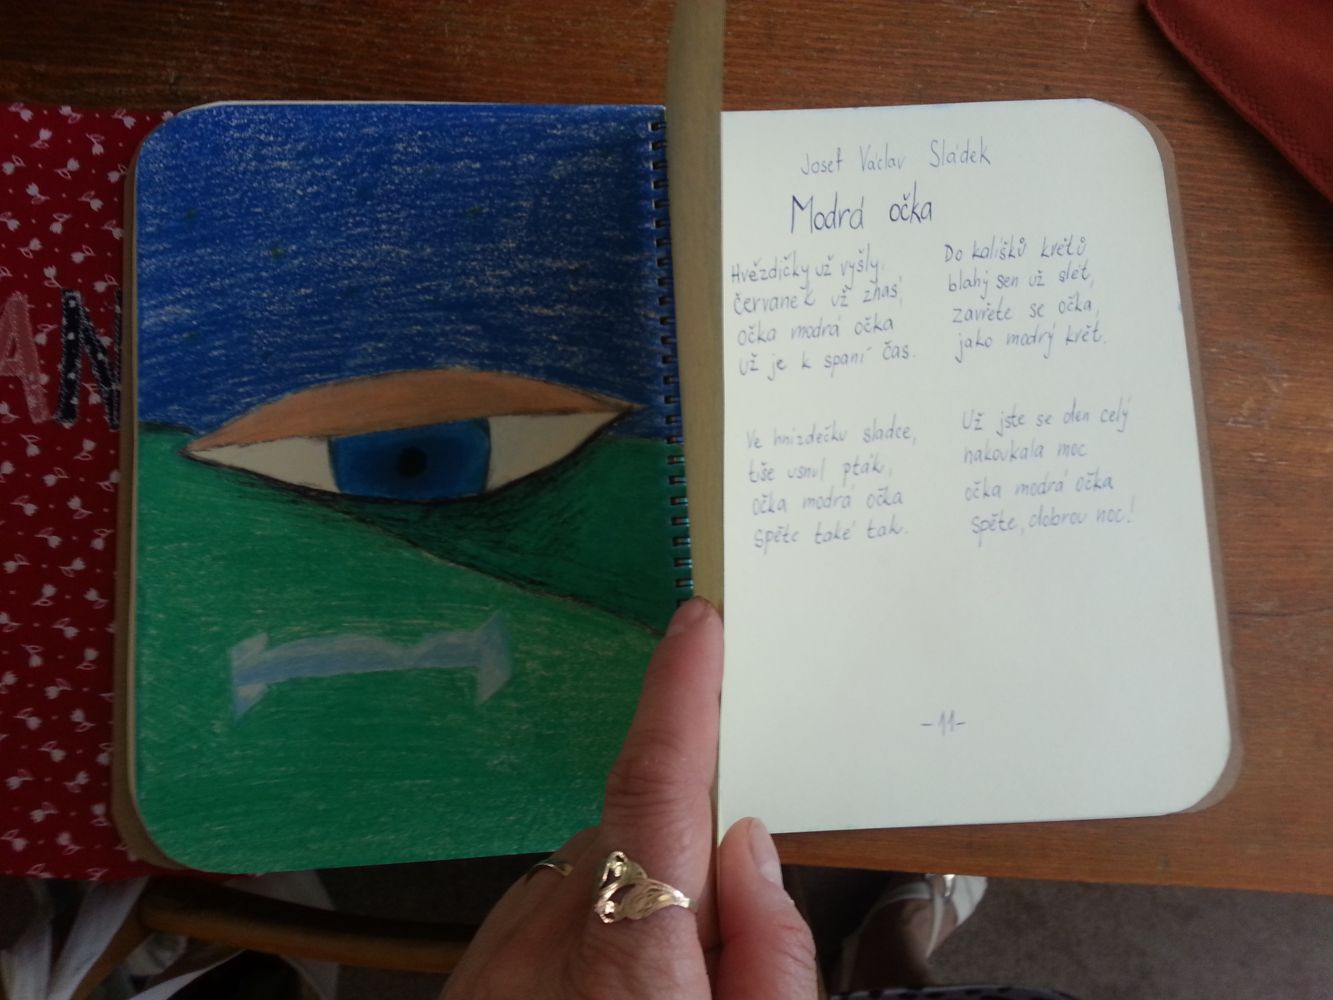 AN
Josef Václav Sládek
Modrá očka
Hvězdičky už vyšly,
červánek už zhas,
očka modrá očka
už je k spaní čas.
Ve hnízdečku sladce,
tiše usnul pták,
očka modrá očka
spěte také tak.
Do kalíšků květů
blahý sen už slét,
zavřete se očka,
jako modrý květ.
Už jste se den celý
nakoukala moc
očka modrá očka
spěte, dobrou noc!
-11-